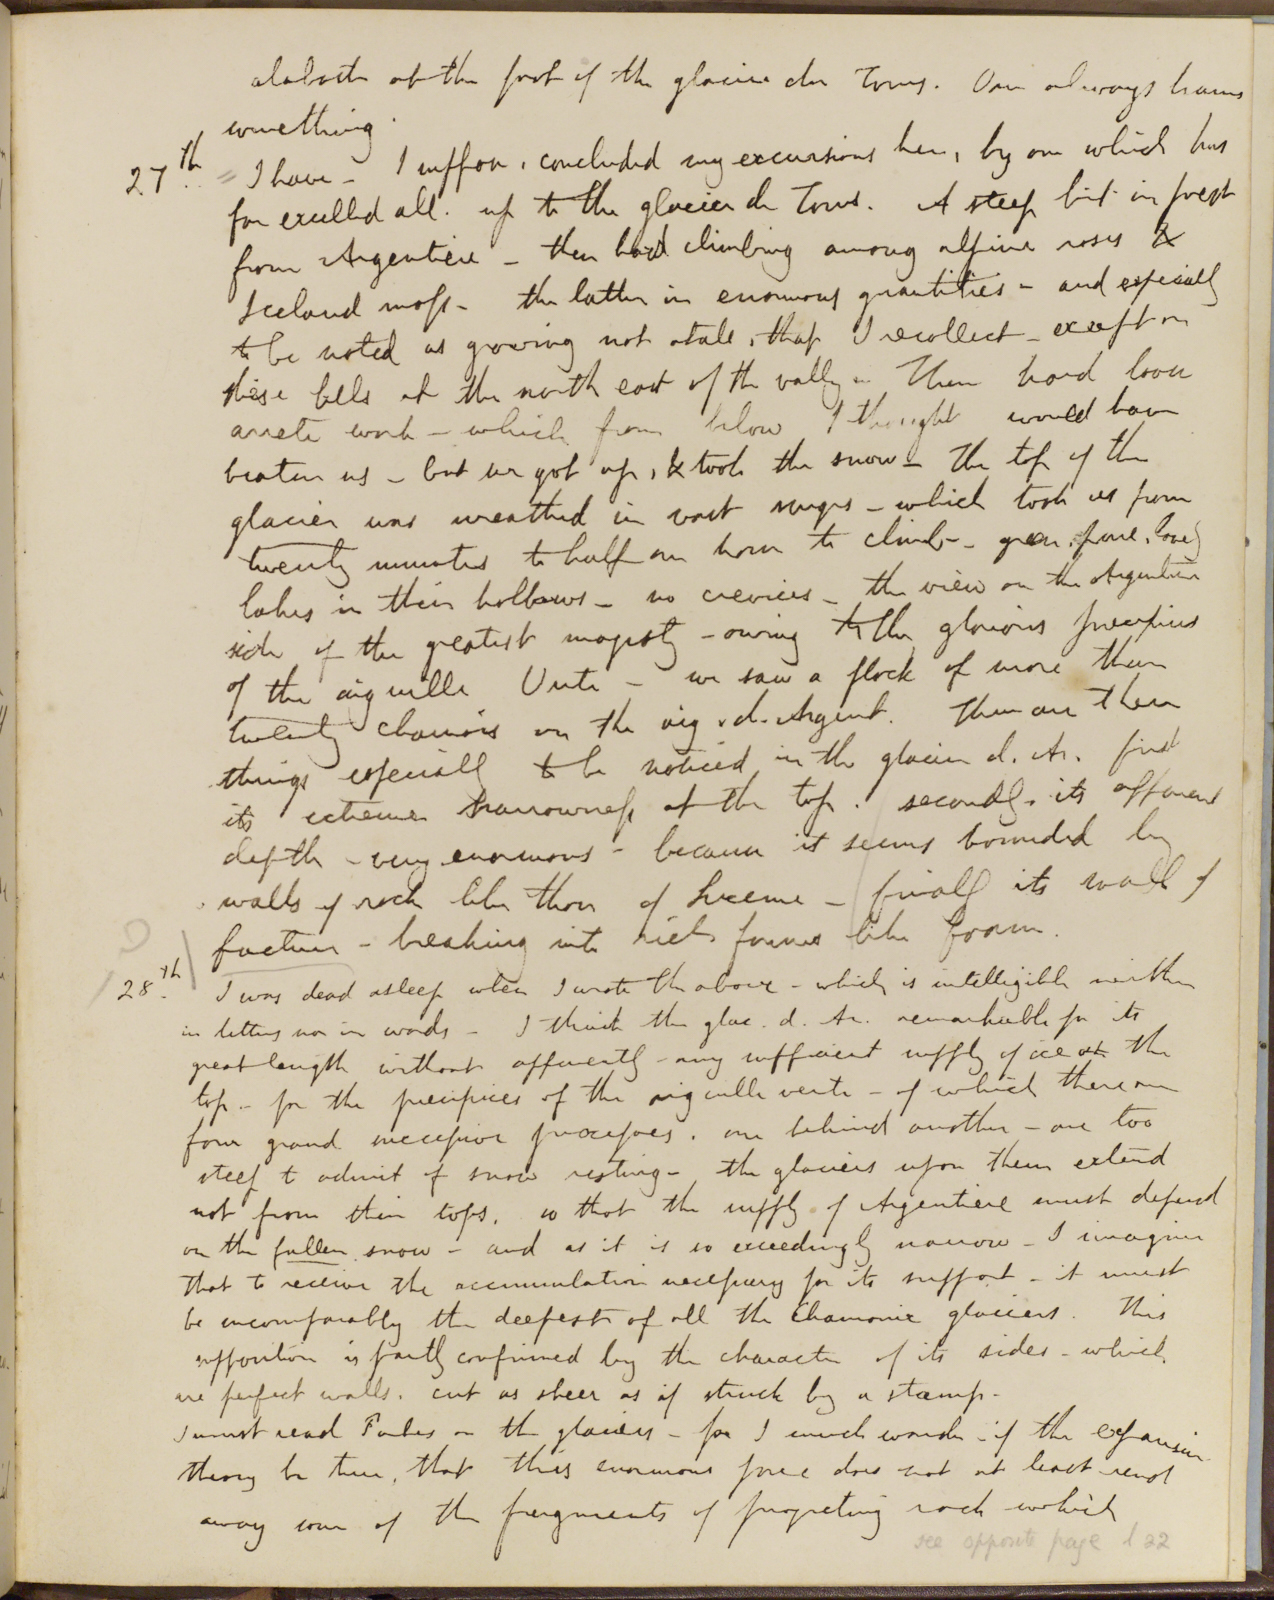 alabaster at the foot of the glacier des Tours. One always learns
something.
27th.. = I have - I suppose, concluded my excursions here, by one which has
far excelled all. up to the glacier de Tours. A steep bit in forest
from Argentiere - then hard climbing among alpine roses &
Iceland moss - the latter in enormous quantities - and especially
to be noted as growing not at all, that I recollect - except on
these fells at the north east of the valley - Then hard loose
arrete work - which from below I thought would have
beaten us - but we got up, & took the snow - The top of the
glacier was wreathed in vast surges - which took us from
twenty minutes to half an hour to climb - green, pure, lovely
lakes in their hollows - no crevices - the view on the Argentiere
side of the greatest majesty - owing to the glorious precipices
of the aiguille Verte - we saw a flock of more than
twenty chamois on the aig. d. Argent. There are three
things especially to be noticed in the glacier d. Ar. first
its extreme narrowness at the top. secondly. its apparent
depth - very enormous - because it seems bounded by
walls of rock like those of Lucerne - finally its wall of
fracture - breaking into rich forms like foam.
28.th I was dead asleep when I wrote the above - which is intelligible neither
in letters nor in words - I think the glac. d. Ar. remarkable for its
great length without apparently - any sufficient supply of ice at the
top - for the precipices of the aiguille verte - of which there are
four grand successive processes, one behind another - are too
steep to admit of snow resting - the glaciers upon them extend
not from their tops, so that the supply of Argentiere must depend
on the fallen snow - and as it is so exceedingly narrow - I imagine
that to receive the accumulation necessary for its support - it must
be incomparably the deepest of all the Chamonix glaciers. This
supposition is partly confirmed by the character of its sides - which
are perfect walls. cut as sheer as if struck by a stamp -
I must read Forbes on the glaciers - for I much wonder - if the expansion
theory be true, that this enormous force does not at least rend
away some of the fragments of projecting rock which
see opposite page l 22